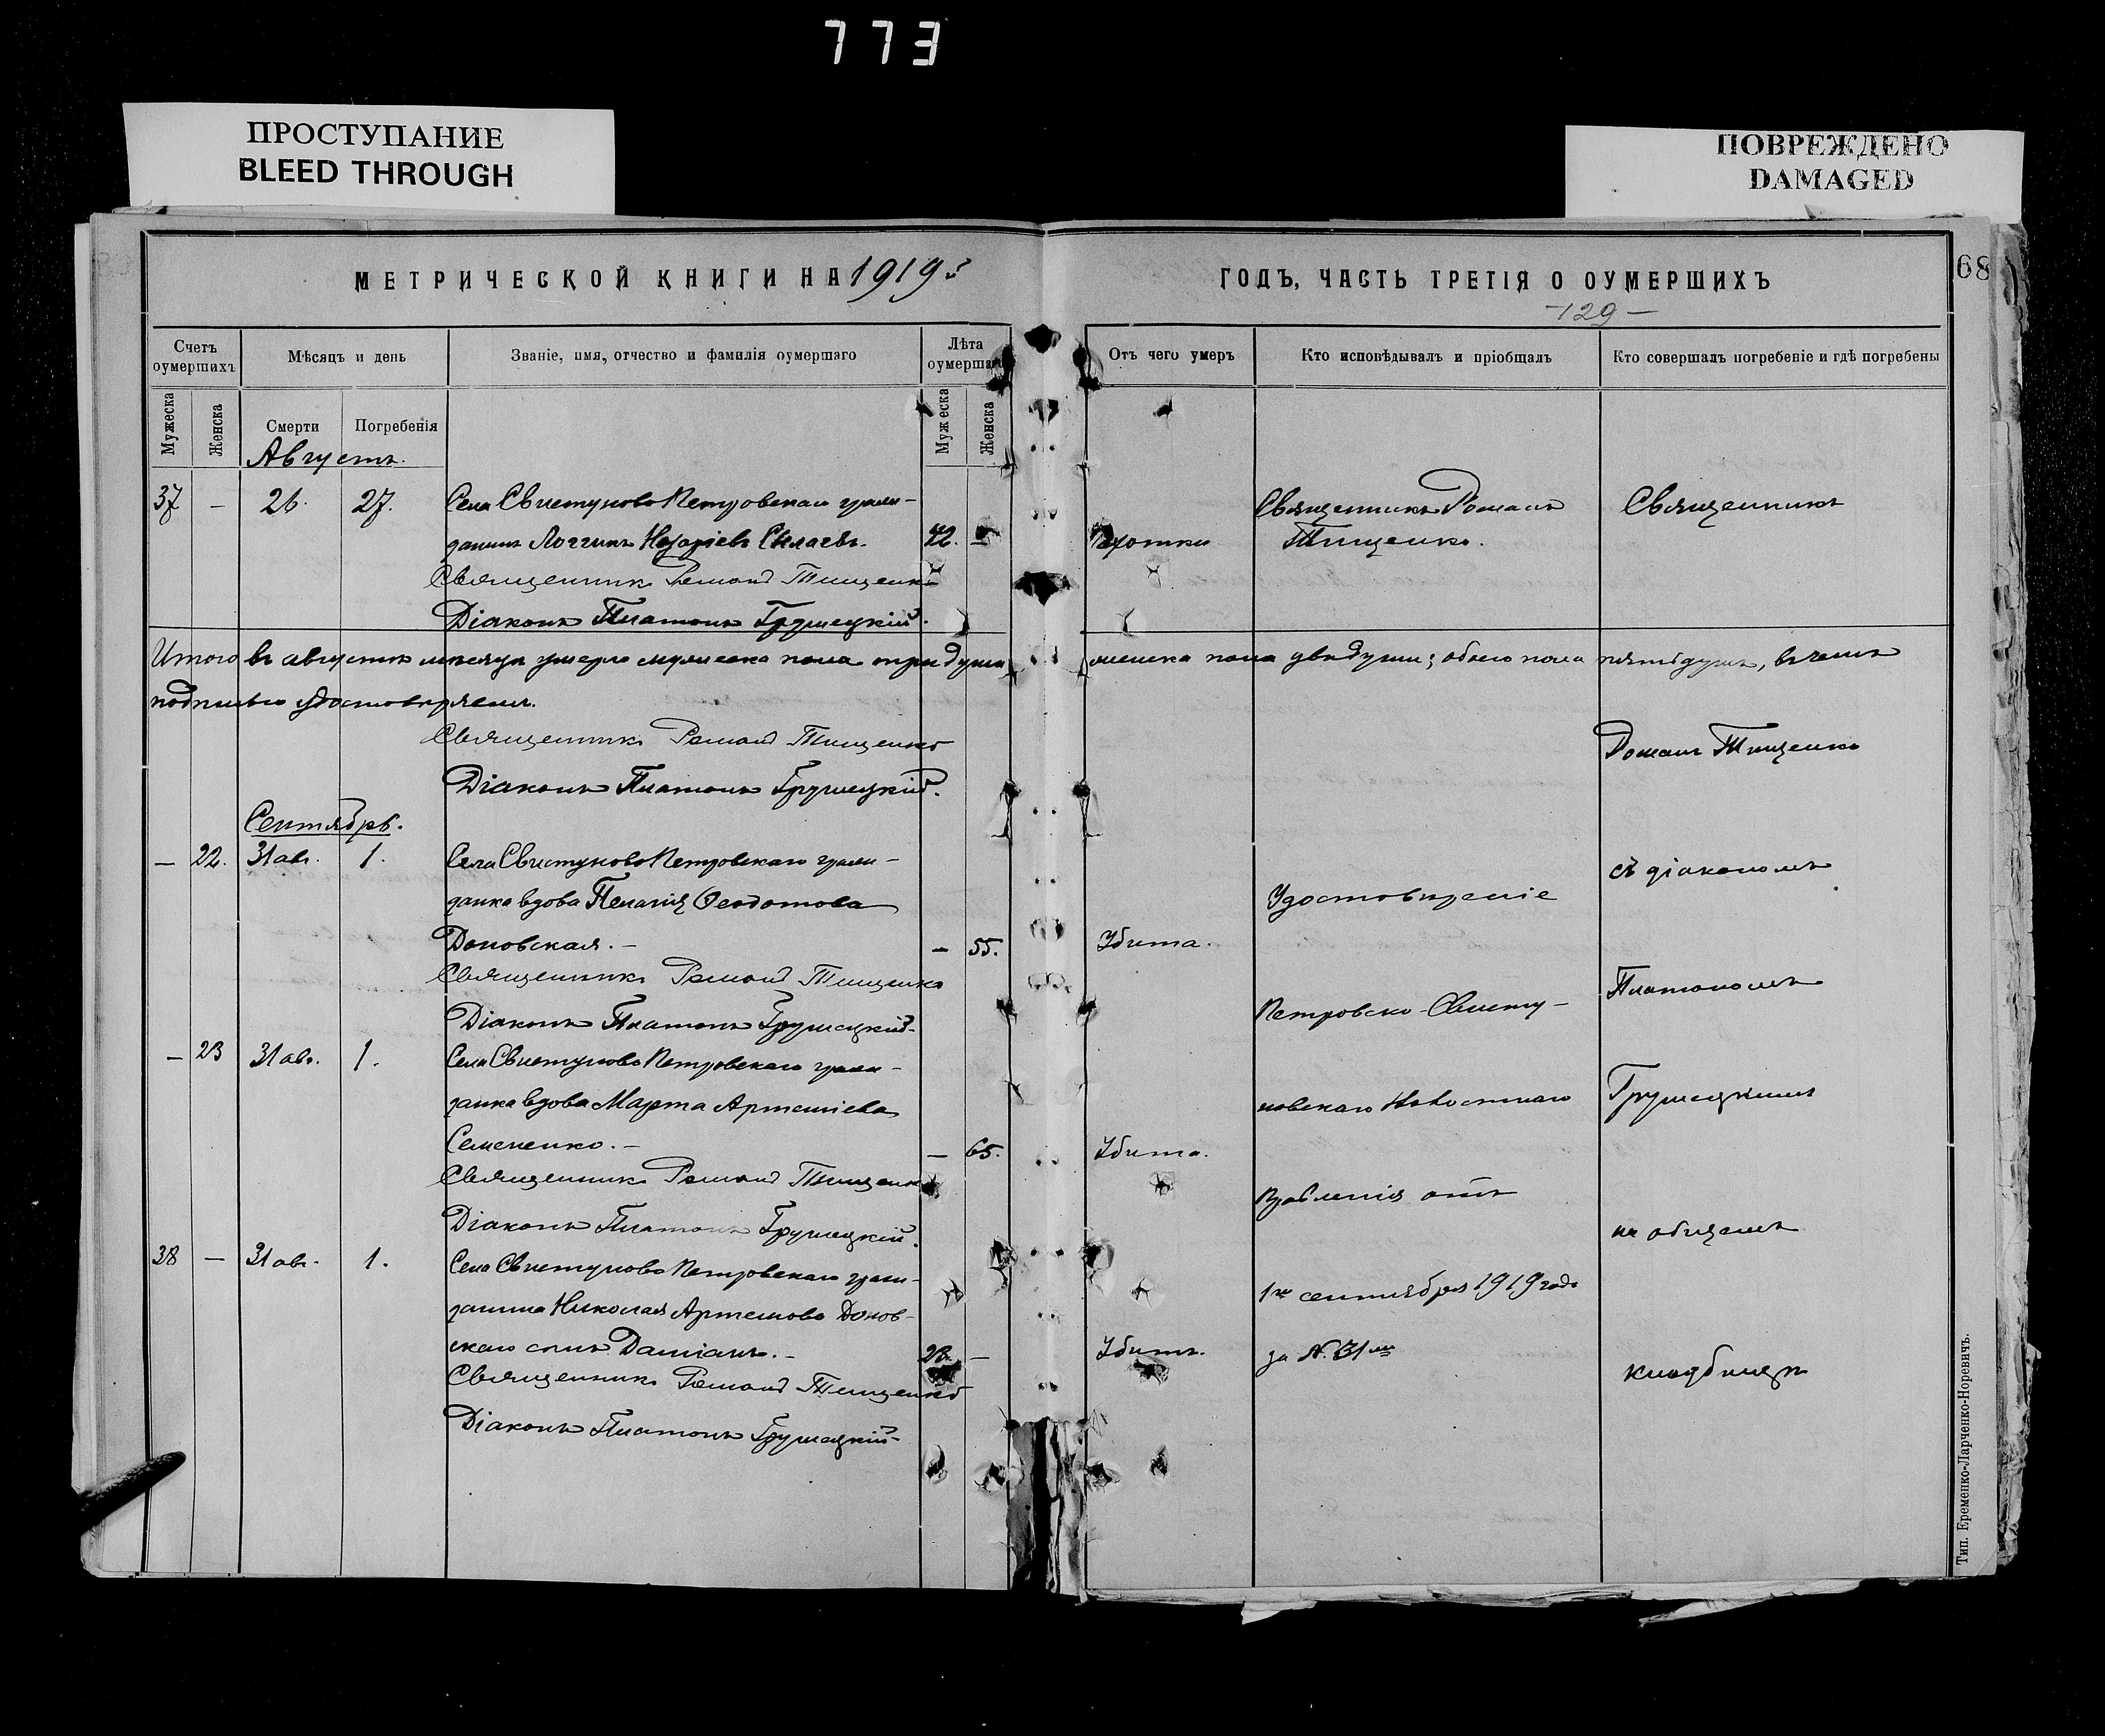 773
ПРОСТУПАНИЕ
BLEED THROUGH
ПОВРЕЖДЕНО
DAMAGED
МЕТРИЧЕСКОЙ КНИГИ НА 1919 г.
ГОДЪ, ЧАСТЬ ТРЕТІЯ О ОУМЕРШИХЪ
68
-129-
Счетъ оумершихъ
Мѣсяцъ и день
Званіе, имя, отчество и фамилія оумершаго
Лѣта оумершаго
Отъ чего умеръ
Кто исповѣдывалъ и пріобщалъ
Кто совершалъ погребеніе и гдѣ погребены
Мужеска
Женска
Смерти
Погребенія
Мужеска
Женска
Августъ.
37 – 26. 27. Села Свистуново Петровскаго граж-
данинъ Логгинъ Назаріевъ 42. –
Священникъ Романъ Тищенко
Діаконъ Платонъ Грушецкій.
Священникъ Романъ
Тищенко.
Итого въ августѣ мѣсяцѣ умерло мужеска пола три души, женска пола двѣ души; обоего пола пять душъ, въ чемъ
подписью удостовѣряемъ.
Священникъ Романъ Тищенко
Діаконъ Платонъ Грушецкій.
Сентябрь.
– 22. 31 авг. 1. Села Свистуново Петровскаго граж-
данка вдова Пелагія Ѳеодотова
Доновская. – – 55. Убита.
Священникъ Романъ Тищенко
Діаконъ Платонъ Грушецкій.
– 23 31 авг. 1. Села Свистуново Петровскаго граж-
данка вдова Марта Артеміева
Семененко. – – 65. Убита.
Священникъ Романъ Тищенко
Діаконъ Платонъ Грушецкій.
38 – 31 авг. 1. Села Свистуново Петровскаго граж-
данина Николая Артемова Донов-
скаго сынъ Даміанъ. – 23. – Убитъ.
Священникъ Романъ Тищенко
Діаконъ Платонъ Грушецкій
Удостовѣреніе
Петровско-Свисту-
новскаго Волостнаго
Правленія отъ
1го сентября 1919 года
за №. 31мъ
Священникъ
Романъ Тищенко
съ діакономъ
Платономъ
Грушецкимъ
на общемъ
кладбищѣ
Тип. Еременко-Ларченко-Норевичъ.